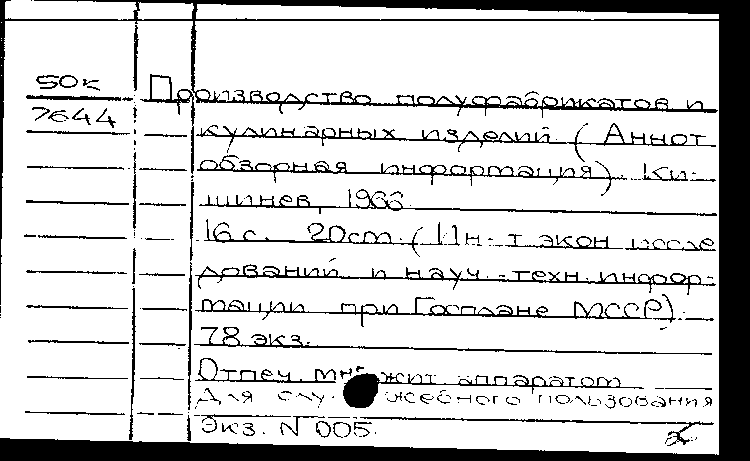 50к
7644
Производство полуфабрикатов и
кулинарных изделий (Аннот
обзорная информация). Ки-
шинев, 1966.
16 с. 20 cm. (Ин-т экон иссле
дований и науч.-техн. инфор-
мации при Госплане МССР).
78 экз.
Отпеч. множит аппаратом
Для служебного пользования
Экз. N 005.